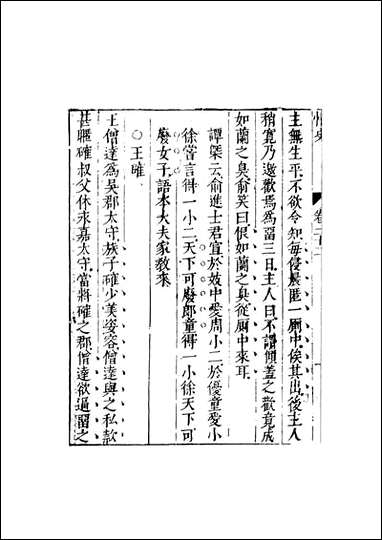 情史 卷二十二
主無生平不欲令知每侵晨匿一厠中俟其出後主人
稍寬乃邀歡焉爲留三日主人曰不謂傾蓋之歡竟成
如蘭之臭俞笑曰恨如蘭之臭從厠中來耳
譚槩云俞進士君宣於妓中愛周小二於優童愛小
徐嘗言得一小二天下可廢郎童得一小徐天下可
廢女子語本大夫家教來
○王確
王僧達爲吳郡太守族子確少美姿容僧達與之私款
甚暱確叔父休永嘉太守當將確之郡僧達欲逼留之